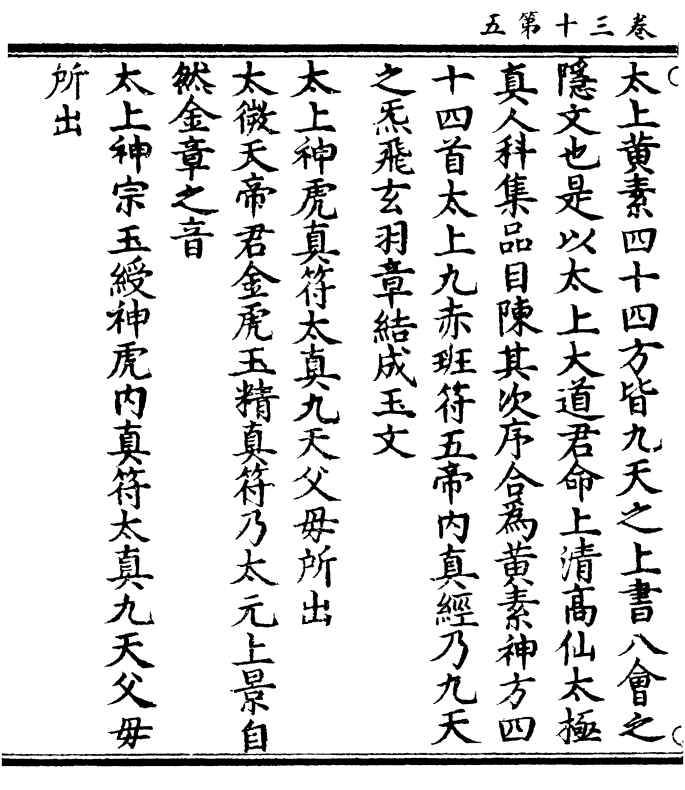 卷三十第五
太上黄素四十四方皆九天之上書八會之
隱文也是以太上大道君命上清髙仙太極
真人科集品目陳其次序合爲黄素神方四
十四首太上九赤班符五帝内真經乃九天
之炁飛玄羽章結成玉文
太上神虎真符太真九天父毋所出
太微天帝君金虎玉精真符乃太元上景自
然金章之音
太上神宗玉綬神虎内真符太真九天父毋
所出